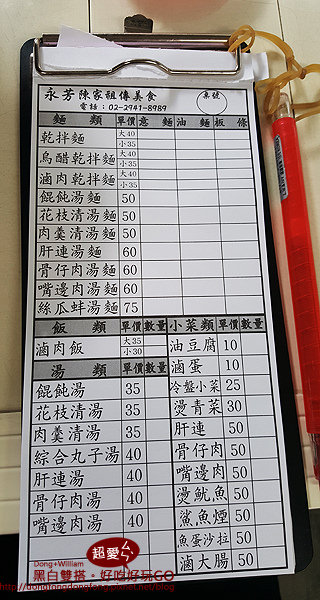 永芳陳家祖傳美食 桌號
電話：02-2941-8989
麵 類 單價 意 麵 油 麵 板 條
乾拌麵 大40 小35
烏醋乾拌麵 大40 小35
滷肉乾拌麵 大40 小35
餛飩湯麵 50
花枝清湯麵 50
肉羹清湯麵 50
肝連湯麵 60
骨仔肉湯麵 60
嘴邊肉湯麵 60
絲瓜蚌湯麵 75
飯 類 單價 數量 小菜類 單價 數量
滷肉飯 大35 小30 油豆腐 10
湯 類 單價 數量 滷蛋 10
餛飩湯 35 冷盤小菜 25
花枝清湯 35 燙青菜 30
肉羹清湯 35 肝連 50
綜合丸子湯 40 骨仔肉 50
肝連湯 40 嘴邊肉 50
骨仔肉湯 40 燙魷魚 50
嘴邊肉湯 40 鯊魚煙 50
魚蛋沙拉 50
滷大腸 50
Dong+William 超愛台
黑白雙搭。好吃好玩GO